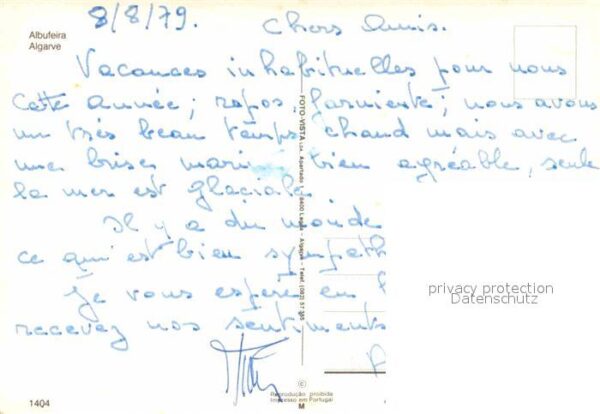 8/8/79. Chers Amis.
Albufeira
Algarve
Vacances inhabituelles pour nous
Cette année; repos, farniente; nous avons
un très beau temps chaud mais avec
une brise marine bien agréable, seule
la mer est glaciale.
Il y a du monde
ce qui est bien sympath
Je vous espère en
recevez nos sentiments
FOTO-VISTA Lda. Apartado 8600 Lagos - Algarve - Telef. (082)
privacy protection
Datenschutz
©
Reprodução proibida
Impresso em Portugal
M
1404